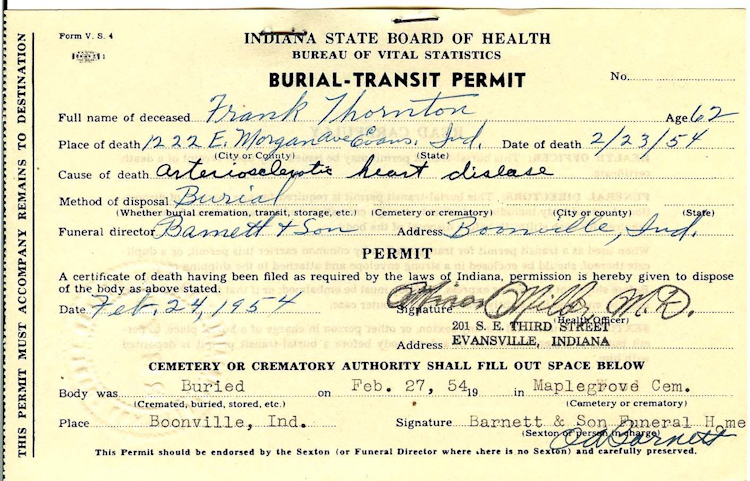 Form V. S. 4
INDIANA STATE BOARD OF HEALTH
BUREAU OF VITAL STATISTICS
BURIAL-TRANSIT PERMIT
No.
Full name of deceased Frank Thornton Age 62
Place of death 1222 E. Morgan Ave Evans. Ind. Date of death 2/23/54
(City or County) (State)
Cause of death arteriosclerotic heart disease
Method of disposal Burial
(Whether burial cremation, transit, storage, etc.) (Cemetery or crematory) (City or county) (State)
Funeral director Barnett & Son Address Boonville, Ind.
PERMIT
A certificate of death having been filed as required by the laws of Indiana, permission is hereby given to dispose
of the body as above stated.
Date Feb. 24, 1954 Signature Miller M.D.
(Health Officer)
201 S. E. THIRD STREET
Address EVANSVILLE, INDIANA
CEMETERY OR CREMATORY AUTHORITY SHALL FILL OUT SPACE BELOW
Body was Buried on Feb. 27, 54 19 in Maplegrove Cem.
(Cremated, buried, stored, etc.) (Cemetery or crematory)
Place Boonville, Ind. Signature Barnett & Son Funeral Home
(Sexton or person in charge)
Barnett
This Permit should be endorsed by the Sexton (or Funeral Director where there is no Sexton) and carefully preserved.
THIS PERMIT MUST ACCOMPANY REMAINS TO DESTINATION